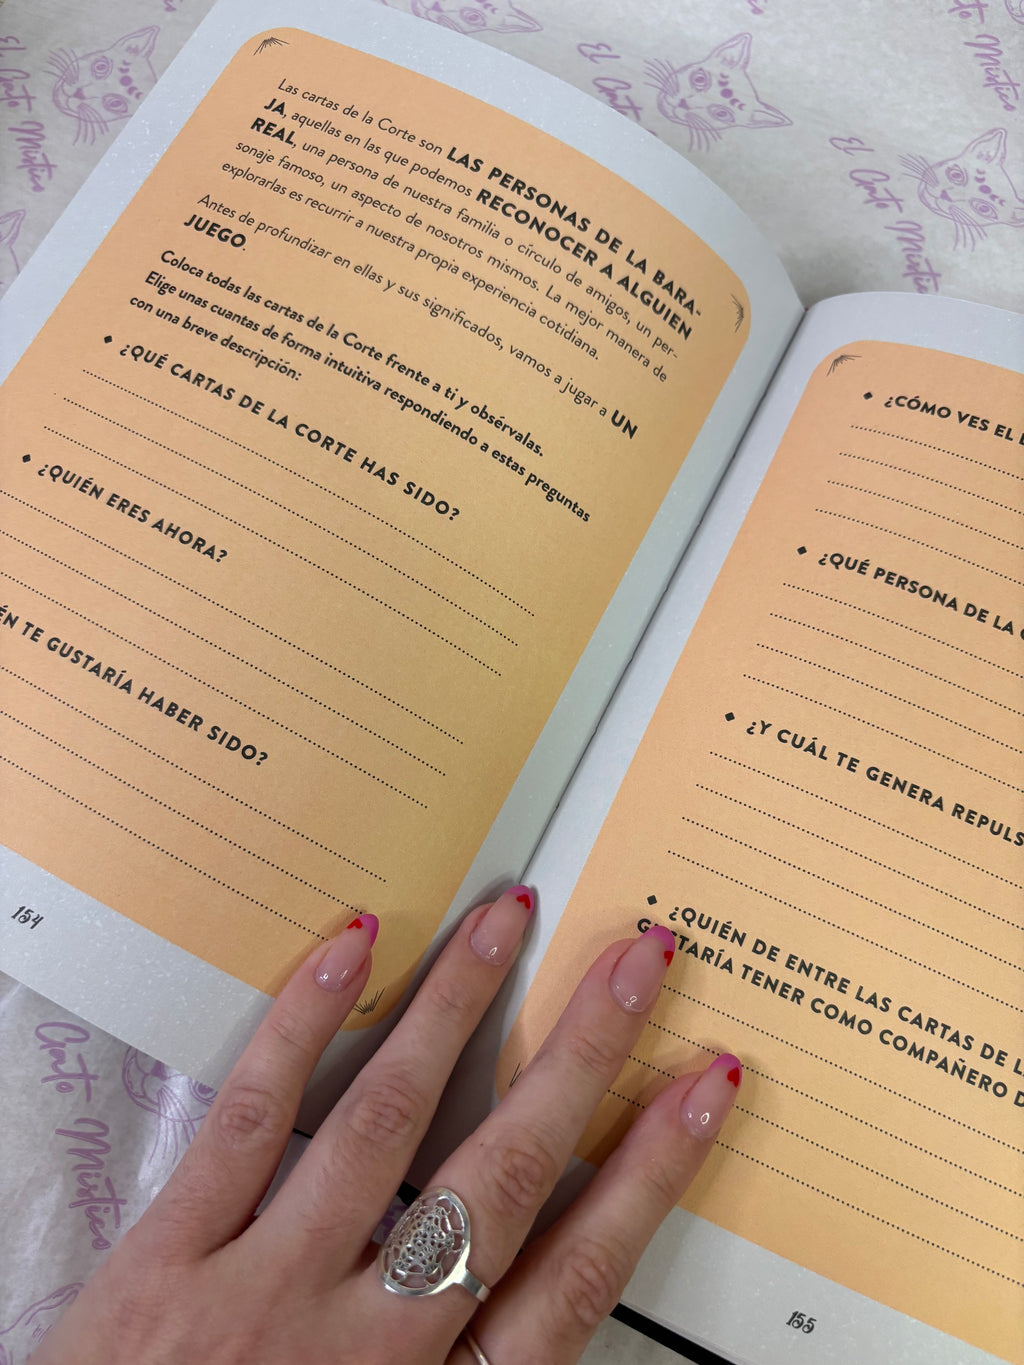 Las cartas de la Corte son LAS PERSONAS DE LA BARA-
JA, aquellas en las que podemos RECONOCER A ALGUIEN
REAL, una persona de nuestra familia o círculo de amigos, un per-
sonaje famoso, un aspecto de nosotros mismos. La mejor manera de
explorarlas es recurrir a nuestra propia experiencia cotidiana.
Antes de profundizar en ellas y sus significados, vamos a jugar a UN
JUEGO.
Coloca todas las cartas de la Corte frente a ti y obsérvalas.
Elige unas cuantas de forma intuitiva respondiendo a estas preguntas
con una breve descripción:
◆ ¿QUÉ CARTAS DE LA CORTE HAS SIDO?
◆ ¿QUIÉN ERES AHORA?
TE GUSTARÍA HABER SIDO?
154
◆ ¿CÓMO VES EL
◆ ¿QUÉ PERSONA DE LA
◆ ¿Y CUÁL TE GENERA
◆ ¿QUIÉN DE ENTRE LAS CARTAS DE
TENER COMO COMPAÑERO
155
El Gato Místico
El Gato Místico
El Gato Místico
Gato Místico
Gato Místico